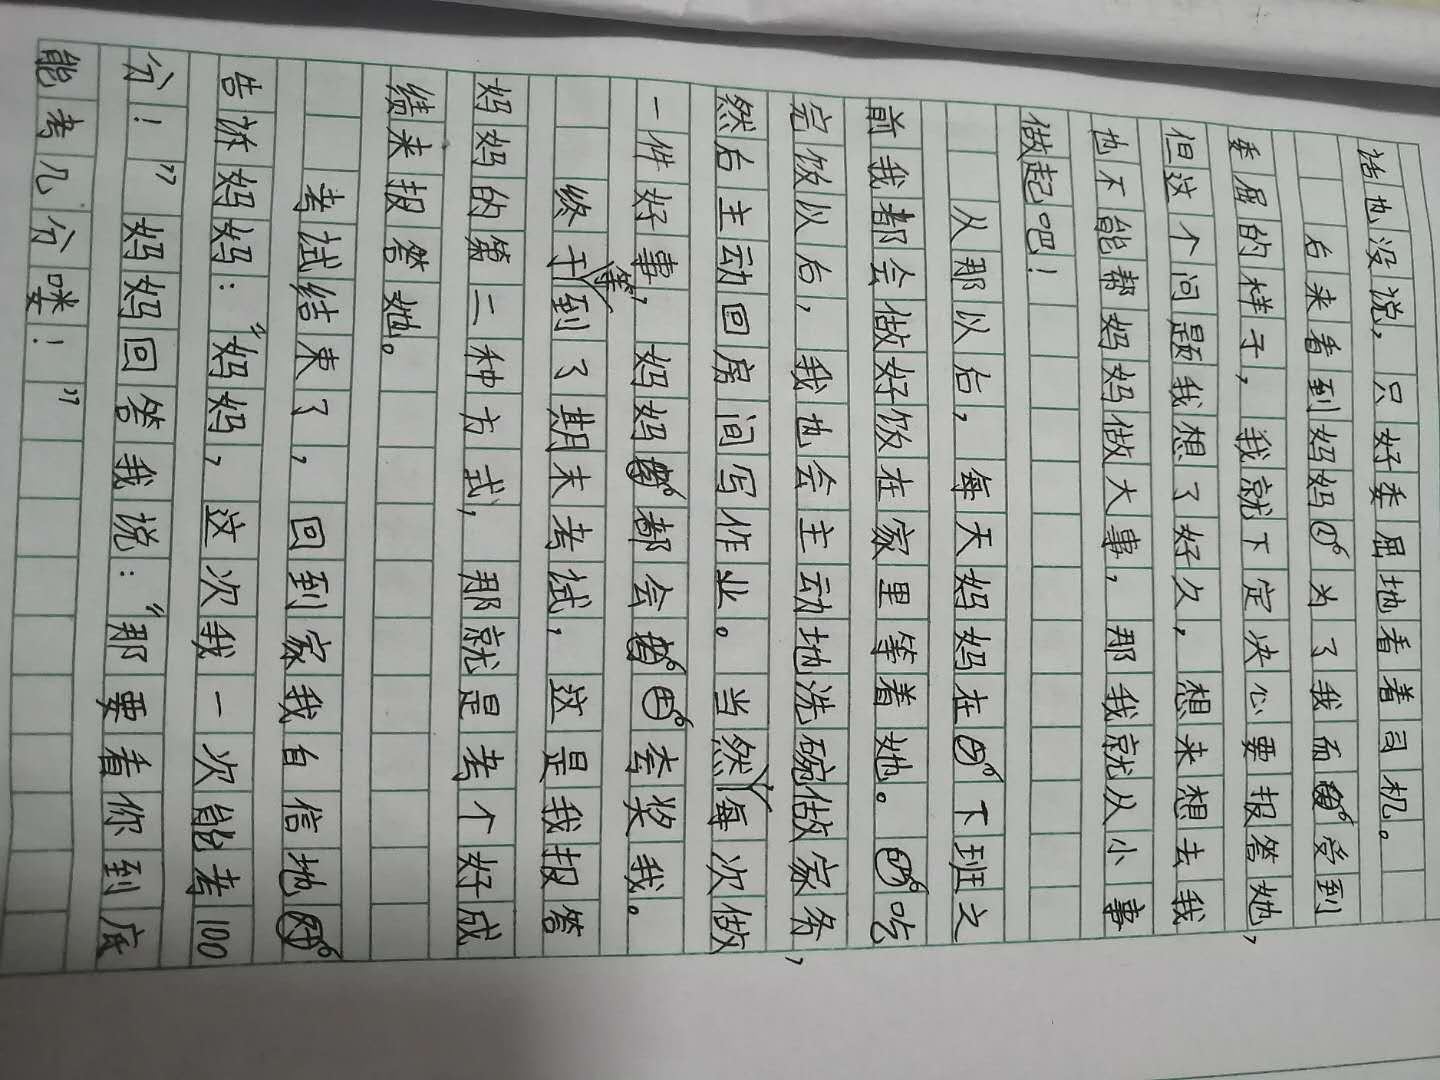 话也没说，只好委屈地看着司机。
后来看到妈妈为了我而受到
委屈的样子，我就下定决心要报答她，
但这个问题我想了好久，想来想去我
也不能帮妈妈做大事，那我就从小事
做起吧！
从那以后，每天妈妈在下班之
前我都会做好饭在家里等着她。吃
完饭以后，我也会主动地洗碗做家务，
然后主动回房间写作业。当然每次做
一件好事，妈妈都会夸奖我。
终于等到了期末考试，这是我报答
妈妈的第二种方式，那就是考个好成
绩来报答她。
考试结束了，回到家我自信地
告诉妈妈：“妈妈，这次我一次能考100
分！”妈妈回答我说：“那要看你到底
能考几分喽！”